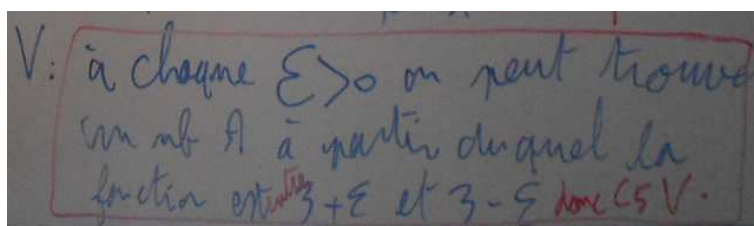 V: à chaque Ɛ>0 on peut trouve
un nb A à partir duquel la
fonction est entre 3+Ɛ et 3-Ɛ donc C5 V.